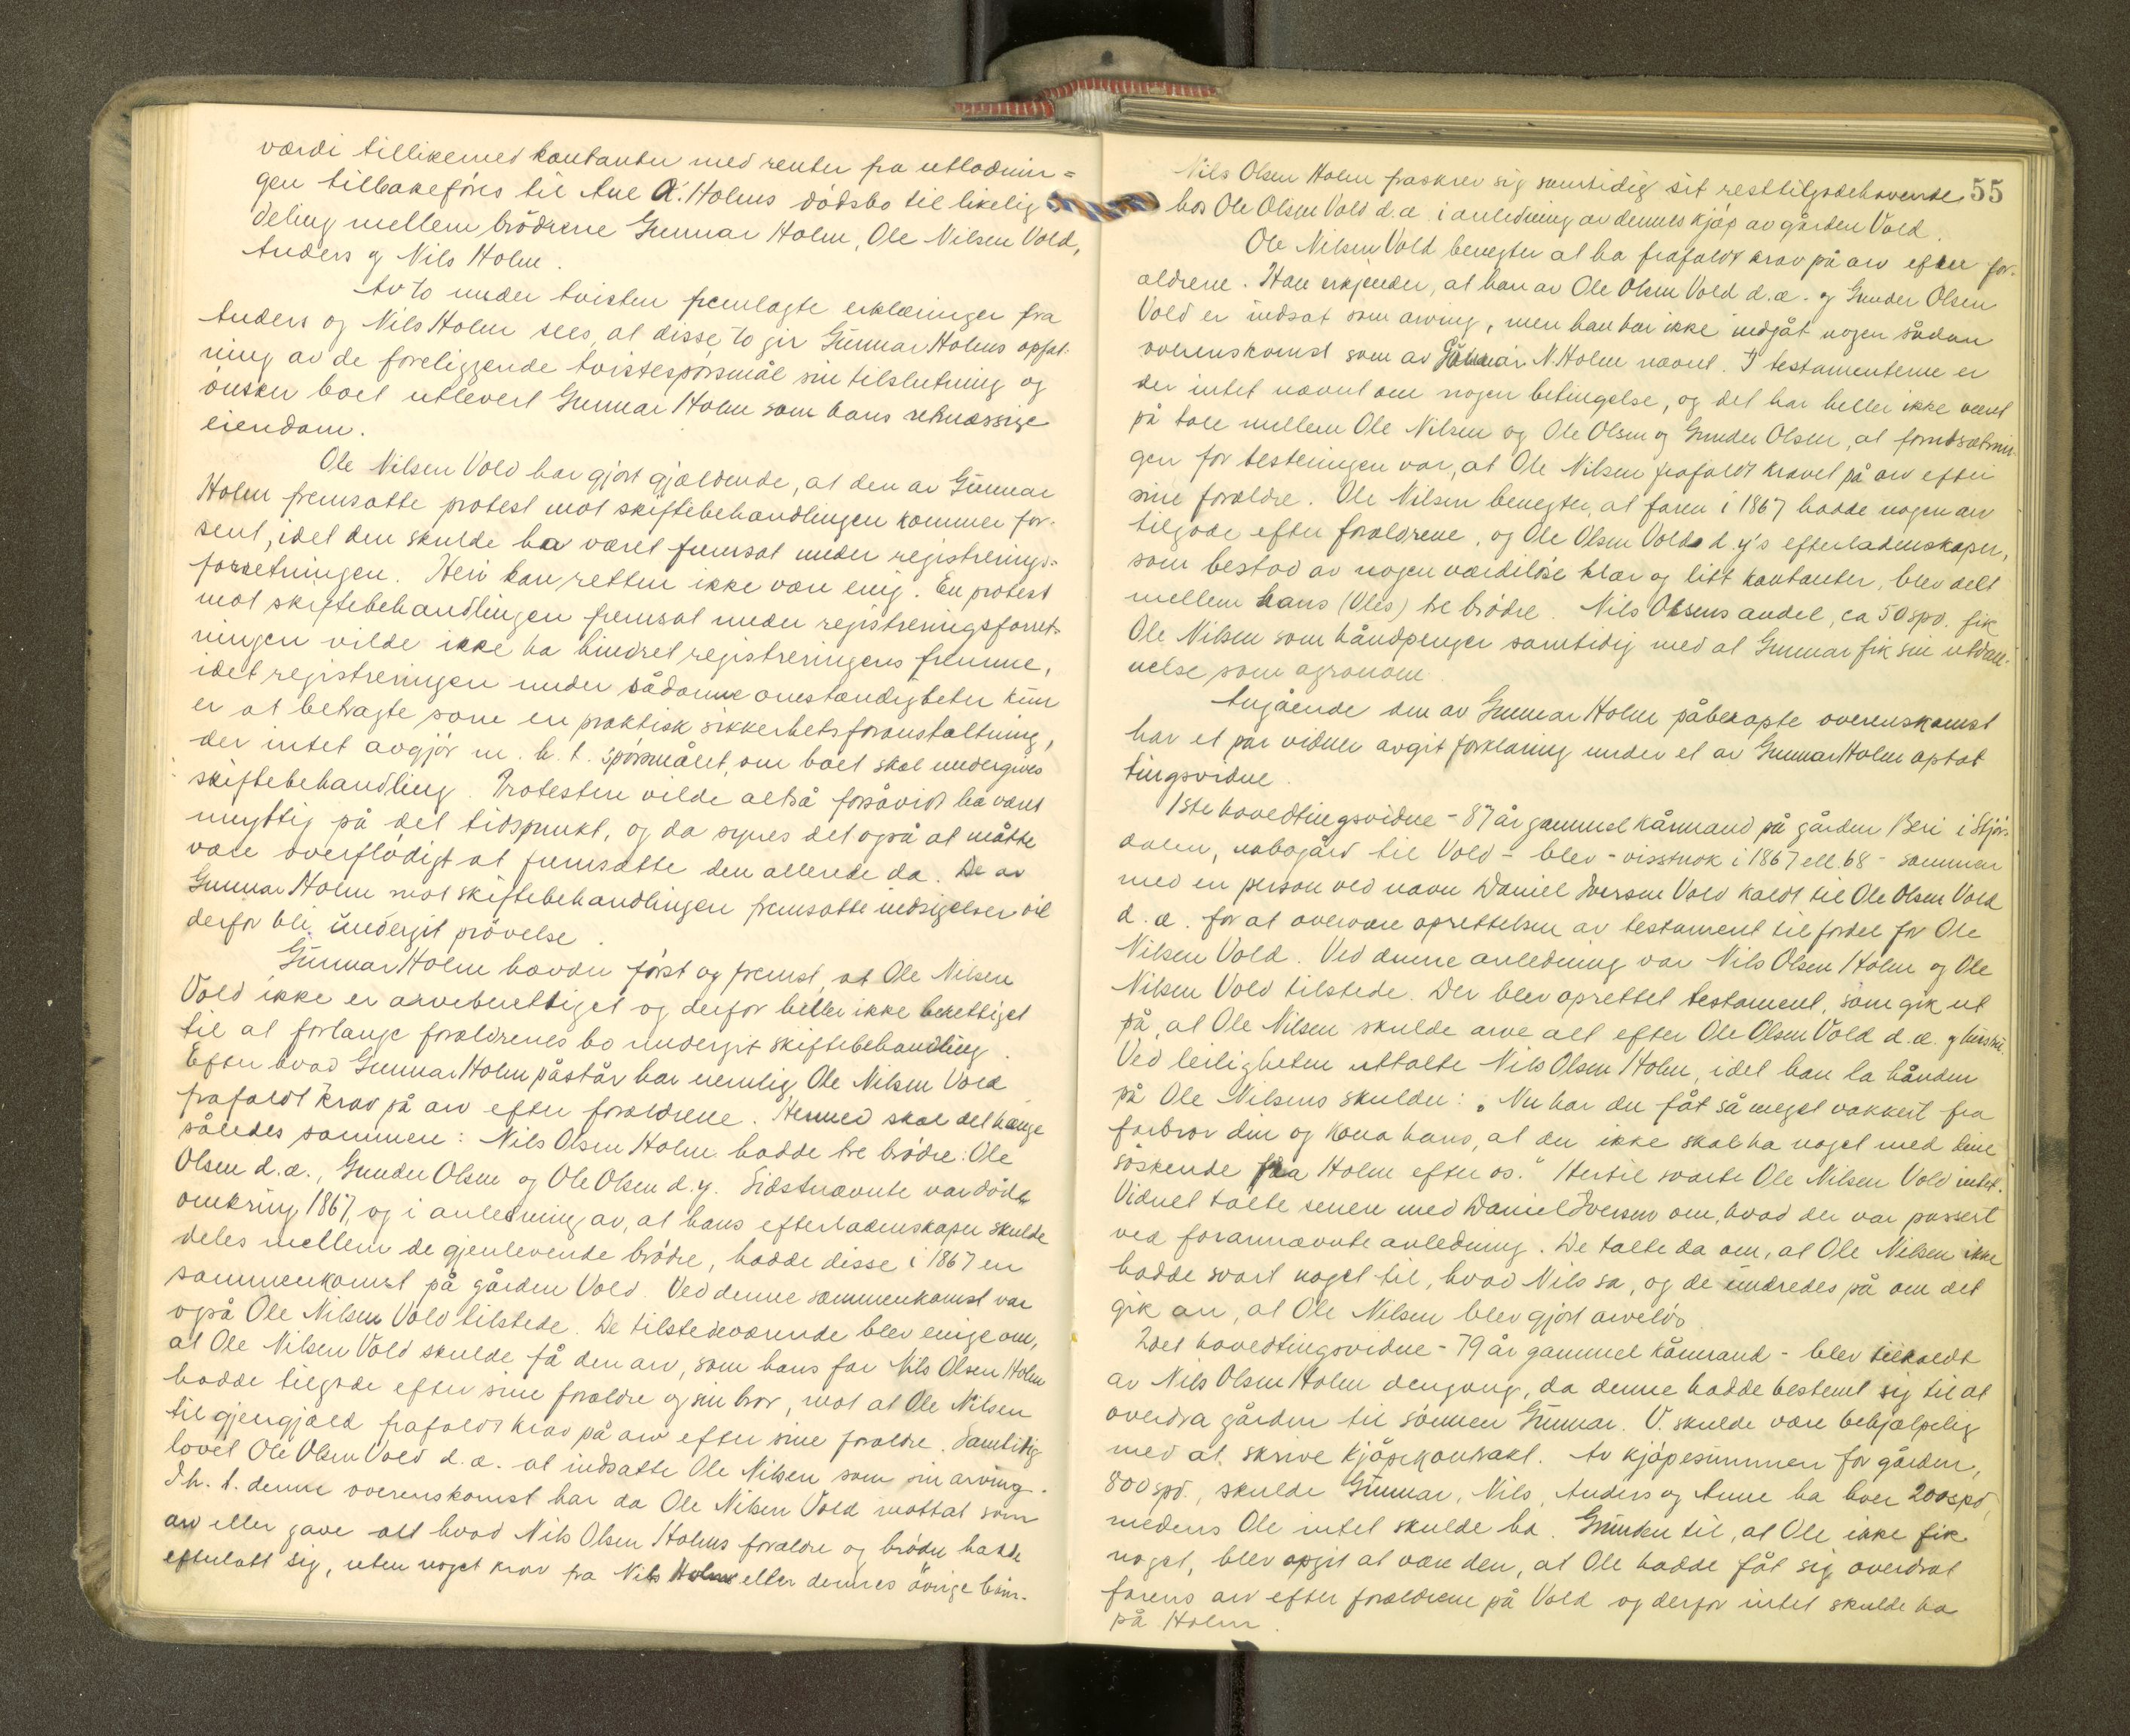 værdi tillikemed kontanter med renter fra utlodnin=
gen tilbakeføres til Ane A. Holms dødsbo til likelig
deling mellem brødrene Gunnar Holm, Ole Nilsen Vold,
Anders og Nils Holm.
Av to under tvisten fremlagte erklæringer fra
Anders og Nils Holm sees, at disse to gir Gunnar Holms opfat-
ning av de foreliggende tvistespørsmål sin tilslutning og
ønsker boet utlevert Gunnar Holm som hans retmæssige
eiendom.
Ole Nilsen Vold har gjort gjældende, at den av Gunnar
Holm fremsatte protest mot skiftebehandlingen kommer for-
sent, idet den skulde ha været fremsat under registrerings-
forretningen. Heri kan retten ikke være enig. En protest
mot skiftebehandlingen fremsat under registreringsforret-
ningen vilde ikke ha hindret registreringens fremme,
idet registreringen under sådanne omstændigheter kun
er at betragte som en praktisk sikkerhetsforanstaltning,
der intet avgjør m. h. t. spørsmålet, om boet skal undergives
skiftebehandling. Protesten vilde altså forsåvidt ha været
unyttig på det tidspunkt, og da synes det også at måtte
være overflødigt at fremsætte den allerede da. De av
Gunnar Holm mot skiftebehandlingen fremsatte indsigelser vil
derfor bli undergit prøvelse.
Gunnar Holm hævder først og fremst, at Ole Nilsen
Vold ikke er arveberettiget og derfor heller ikke berettiget
til at forlange forældrenes bo undergit skiftebehandling.
Efter hvad Gunnar Holm påstår har nemlig Ole Nilsen Vold
frafaldt krav på arv efter forældrene. Hermed skal det hænge
således sammen: Nils Olsen Holm hadde tre brødre: Ole
Olsen d.æ., Gunder Olsen og Ole Olsen d.y. Sidstnævnte var død
omkring 1867, og i anledning av, at hans efterladenskaper skulde
deles mellem de gjenlevende brødre, hadde disse i 1867 en
sammenkomst på gården Vold. Ved denne sammenkomst var
også Ole Nilsen Vold tilstede. De tilstedeværende blev enige om,
at Ole Nilsen Vold skulde få den arv, som hans far Nils Olsen Holm
hadde tilgode efter sine forældre og sin bror, mot at Ole Nilsen
til gjengjæld frafaldt krav på arv efter sine forældre. Samtidig
lovet Ole Olsen Vold d.æ. at indsætte Ole Nilsen som sin arving.
I h. t. denne overenskomst har da Ole Nilsen Vold mottat som
arv eller gave alt hvad Nils Olsen Holms forældre og brødre hadde
efterlatt sig, uten noget krav fra Nils Holm eller dennes øvrige barn.
55
Nils Olsen Holm fraskrev sig samtidig sit resttilgodehavende
hos Ole Olsen Vold d.æ. i anledning av dennes kjøp av gården Vold.
Ole Nilsen Vold benegter at ha frafaldt krav på arv efter for-
ældrene. Han erkjender, at han av Ole Olsen Vold d.æ. og Gunder Olsen
Vold er indsat som arving, men han har ikke indgåt nogen sådan
overenskomst som av Gunnar N. Holm nævnt. I testamenterne er
der intet nævnt om nogen betingelse, og det har heller ikke været
på tale mellem Ole Nilsen og Ole Olsen og Gunder Olsen, at forutsætnin-
gen for testeringen var, at Ole Nilsen frafaldt kravet på arv efter
sine forældre. Ole Nilsen benegter, at faren i 1867 hadde nogen arv
tilgode efter forældrene, og Ole Olsen Volds d.y's efterladenskaper,
som bestod av nogen værdiløse klær og litt kontanter, blev delt
mellem hans (Oles) tre brødre. Nils Olsens andel, ca 50 spd. fik
Ole Nilsen som håndpenger samtidig med at Gunnar fik sin utdan-
nelse som agronom.
Angående den av Gunnar Holm påberopte overenskomst
har et par vidner avgit forklaring under et av Gunnar Holm optat
tingsvidne.
1ste hovedtingsvidne - 87 år gammel kårmand på gården Beri i Stjør-
dalen, nabogård til Vold - blev - visstnok i 1867 ell. 68 - sammen
med en person ved navn Daniel Iversen Vold kaldt til Ole Olsen Vold
d.æ. for at overvære oprettelsen av testament til fordel for Ole
Nilsen Vold. Ved denne anledning var Nils Olsen Holm og Ole
Nilsen Vold tilstede. Der blev oprettet testament, som gik ut
på, at Ole Nilsen skulde arve alt efter Ole Olsen Vold d.æ. og hustru.
Ved leiligheten uttalte Nils Olsen Holm, idet han la hånden
på Ole Nilsens skulder: „Nu har du fåt så meget vakkert fra
farbror din og kona hans, at du ikke skal ha noget med dine
søskende fra Holm efter os." Hertil svarte Ole Nilsen Vold intet.
Vidnet talte senere med Daniel Iversen om, hvad der var passert
ved forannævnte anledning. De talte da om, at Ole Nilsen ikke
hadde svart noget til, hvad Nils sa, og de undredes på om det
gik an, at Ole Nilsen blev gjort arveløs.
2det hovedtingsvidne - 79 år gammel kårmand - blev tilkaldt
av Nils Olsen Holm dengang, da denne hadde bestemt sig til at
overdra gården til sønnen Gunnar. V. skulde være behjælpelig
med at skrive kjøpekontrakt. Av kjøpesummen for gården,
800 spd., skulde Gunnar, Nils, Anders og Anne ha hver 200 spd,
medens Ole intet skulde ha. Grunden til, at Ole ikke fik
noget, blev opgit at være den, at Ole hadde fåt sig overdrat
farens arv efter forældrene på Vold og derfor intet skulde ha
på Holm.